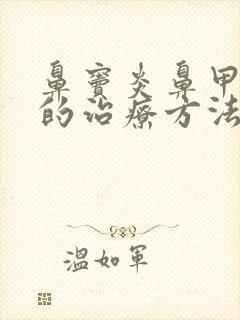 鼻窦炎鼻甲
的治疗方法
温如军